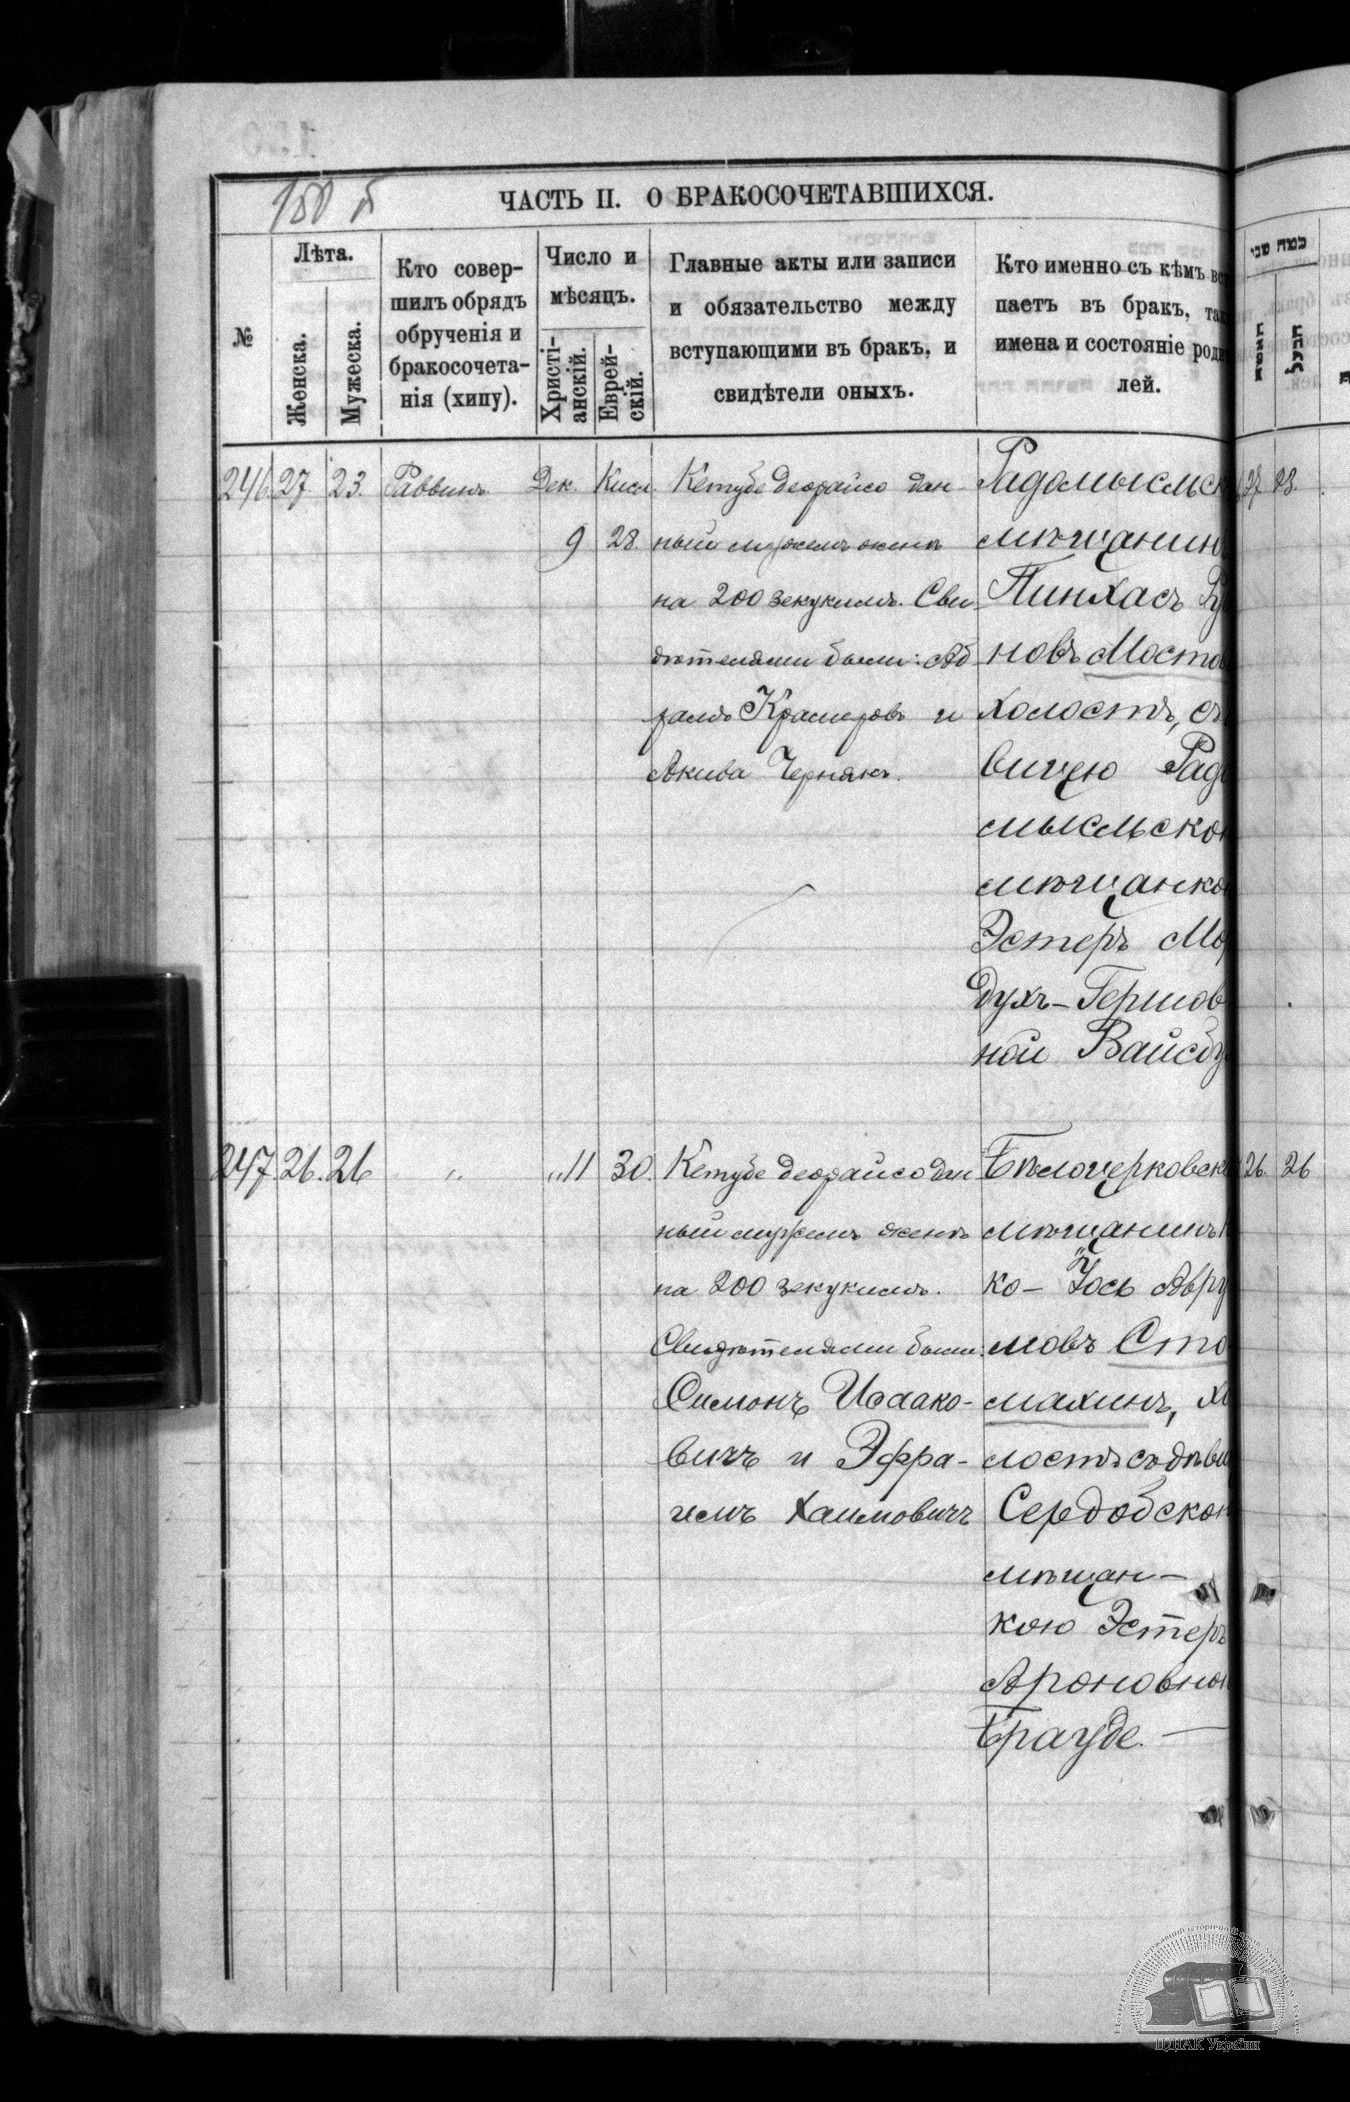 150 б
ЧАСТЬ II. О БРАКОСОЧЕТАВШИХСЯ.
№
Лѣта.
Женска.
Мужеска.
Кто совер-
шилъ обрядъ
обрученія и
бракосочета-
нія (хипу).
Число и
мѣсяцъ.
Христі-
анскій.
Еврей-
скій.
Главные акты или записи
и обязательство между
вступающими въ бракъ, и
свидѣтели оныхъ.
Кто именно съ кѣмъ вст
паетъ въ бракъ, так
имена и состояніе роди
лей.
246 27. 23. Раввинъ Дек. Кисл.
9 28.
Кетубе деорайсо дан
ный мужемъ женѣ
на 200 зекукимъ. Сви
дѣтелями были: Аб
рамъ Крамеровъ и
Акива Чернякъ.
Радомысльск
мѣщанин
Пинхасъ Ру
новъ Мосто
холостъ, съ
вицею Радо
мысльской
мѣщанко
Эстеръ Мор
духъ-Гершов
ной Вайсбу
27 23.
247. 26. 26 " " 11 30.
Кетубе деорайсо дан
ный мужемъ женѣ
на 200 зекукимъ.
Свидѣтелями были:
Симонъ Исаако-
вичъ и Эфра-
имъ Хаимовичъ
Бѣлоцерковск
мѣщанинъ
ко- Іось Авру
мовъ Сто
махинъ, хо
лостъ съ дѣви
Сердобской
мѣщан-
кою Эстеръ
Ароновной
Брауде. —
26. 26
כמה שני
האשה
הבעל
ЦДІАК України